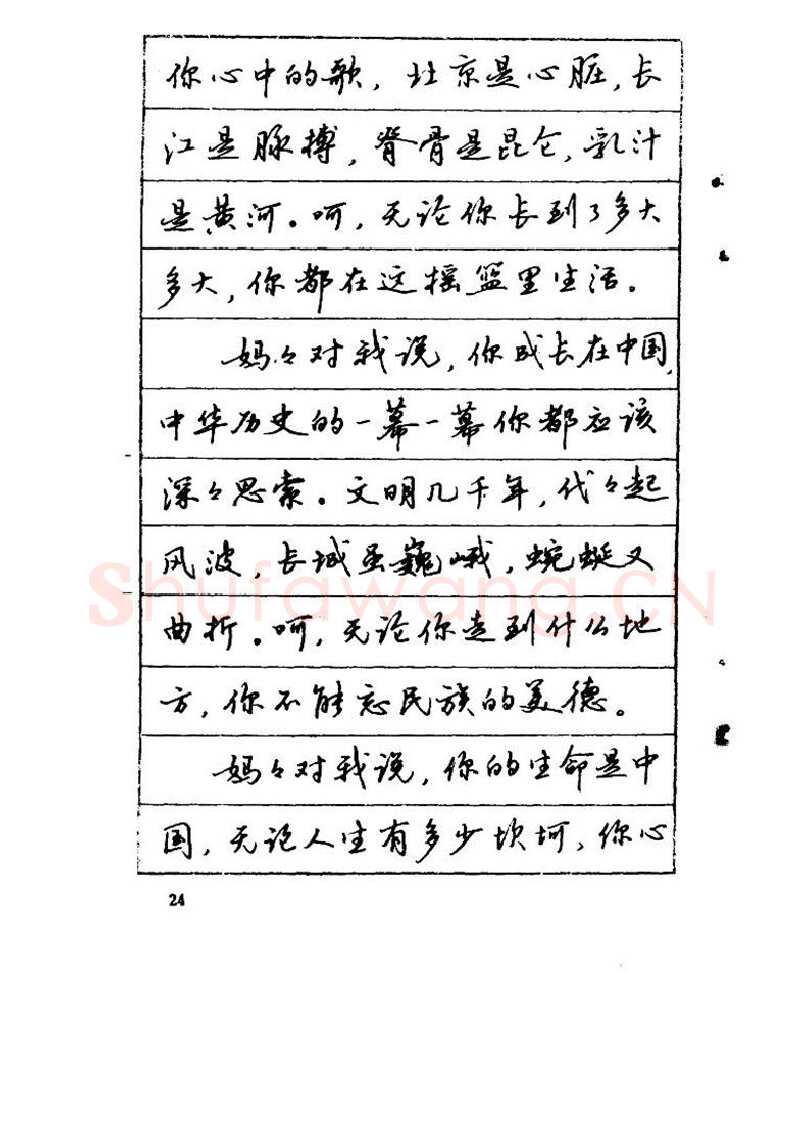 你心中的歌，北京是心脏，长
江是脉搏，脊骨是昆仑，乳汁
是黄河。呵，无论你长到了多大
多大，你都在这摇篮里生活。
妈々对我说，你成长在中国，
中华历史的一幕一幕你都应该
深々思索。文明几千年，代々起
风波，长城虽巍峨，蜿蜒又
曲折。呵，无论你走到什么地
方，你不能忘民族的美德。
妈々对我说，你的生命是中
国，无论人生有多少坎坷，你心
24
Shufawang.CN